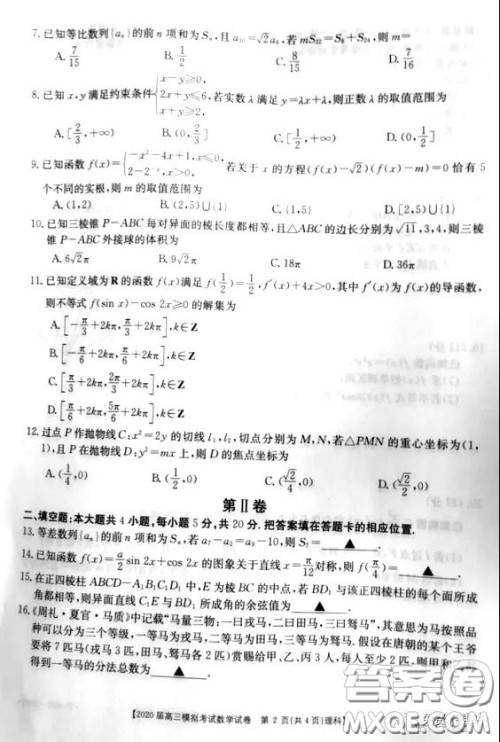 7. 已知等比数列{aₙ}的前 n 项和为 Sₙ,且 a₁₀=√2a₄,若 mS₃₂=S₈+S₂₄,则 m=
A. 7/15 B. 1/2 C. 8/15 D. 7/16
8. 已知 x,y 满足约束条件{x−y≥0, 2x+y≤6, x+y≥0,若实数 λ 满足 y=λx+λ,则正数 λ 的取值范围为
A. [2/3,+∞) B. (0,2/3] C. [1/2,+∞) D. (0,1/2]
9. 已知函数 f(x)={−x²−4x+1,x≤0, 2−2⁻ˣ,x>0,若关于 x 的方程(f(x)−√2)(f(x)−m)=0 恰有 5
个不同的实根,则 m 的取值范围为
A. (1,2) B. (1,5) C. (2,5) D. [2,5)∪{1}
10. 已知三棱锥 P−ABC 每对异面的棱长度都相等,且△ABC 的边长分别为√11,3,4,则三棱
锥 P−ABC 外接球的体积为
A. 6√2π B. 9√2π C. 18π D. 36π
11. 已知定义域为 R 的函数 f(x)满足 f(1/2)=1/2,f′(x)+4x>0,其中 f′(x)为 f(x)的导函数,
则不等式 f(sin x)−cos 2x≥0 的解集为
A. [−π/3+2kπ,π/3+2kπ],k∈Z
B. [−π/6+2kπ,π/6+2kπ],k∈Z
C. [π/3+2kπ,2π/3+2kπ],k∈Z
D. [π/6+2kπ,5π/6+2kπ],k∈Z
12. 过点 P 作抛物线 C:x²=2y 的切线 l₁,l₂,切点分别为 M,N,若△PMN 的重心坐标为(1,
1),且 P 在抛物线 D:y²=mx 上,则 D 的焦点坐标为
A. (1/4,0) B. (1/2,0) C. (√2/4,0) D. (√2/2,0)
第Ⅱ卷
二、填空题:本大题共 4 小题,每小题 5 分,共 20 分.把答案填在答题卡的相应位置.
13. 等差数列{aₙ}的前 n 项和为 Sₙ,若 a₇−a₂=a₉−10,则 S₇= ▲ .
14. 已知函数 f(x)=a/2 sin 2x+cos 2x 的图象关于直线 x=π/12对称,则 f(π/4)= ▲ .
15. 在正四棱柱 ABCD−A₁B₁C₁D₁ 中,E 为棱 BC 的中点,若 BD₁ 与该正四棱柱的每个面所成
角都相等,则异面直线 C₁E 与 BD₁ 所成角的余弦值为 ▲ .
16. 《周礼·夏官·马质》中记载“马量三物:一曰戎马,二曰田马,三曰驽马”,其意思为马按照品
种可以分为三个等级,一等马为戎马,二等马为田马,三等马为驽马.假设在唐朝的某个王爷
要将 7 匹马(戎马 3 匹,田马、驽马各 2 匹)赏赐给甲、乙、丙
得到一等马的分法总数为 ▲ .
【2020 届高三模拟考试数学试卷 第 2 页(共 4 页)理科】